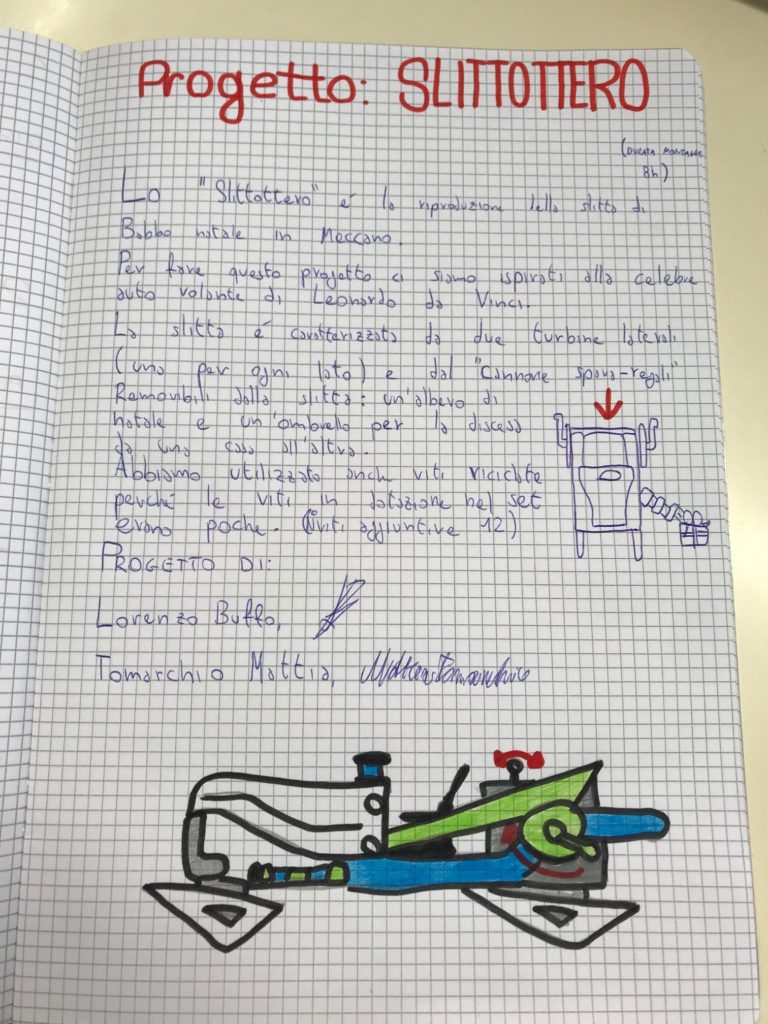 Progetto: SLITTOTTERO
(DURATA MONTAGGIO
8h)
Lo "Slittottero" é la riproduzione della slitta di
Babbo natale in Meccano.
Per fare questo progetto ci siamo ispirati alla celebre
auto volante di Leonardo da Vinci.
La slitta é caratterizzata da due turbine laterali
(una per ogni lato) e dal "cannone spara-regali"
Removibili dalla slitta: un'albero di
natale e un'ombrello per la discesa
da una casa all'altra.
Abbiamo utilizzato anche viti riciclate
perché le viti in dotazione nel set
erano poche. (viti aggiuntive 12)
PROGETTO DI:
Lorenzo Buffo,
Tomarchio Mattia, Mattia Tomarchio